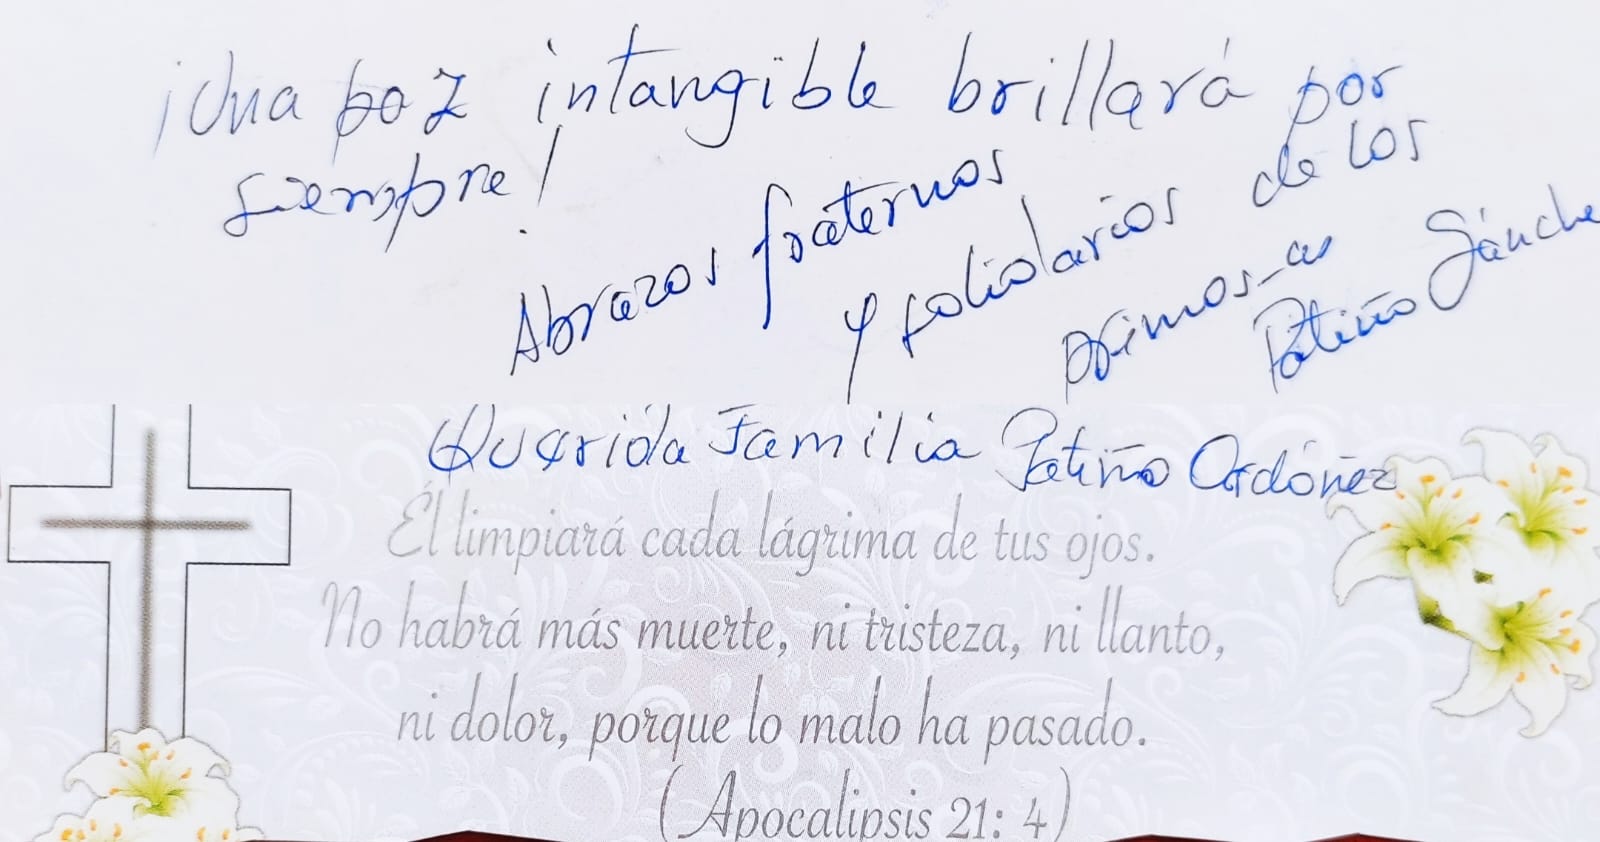 ¡Una paz intangible brillará por
siempre!
Abrazos fraternos
y solidarios de los
primos-as
Patiño Sánche
Querida Familia Patiño Ordóñez
Él limpiará cada lágrima de tus ojos.
No habrá más muerte, ni tristeza, ni llanto,
ni dolor, porque lo malo ha pasado.
(Apocalipsis 21: 4)